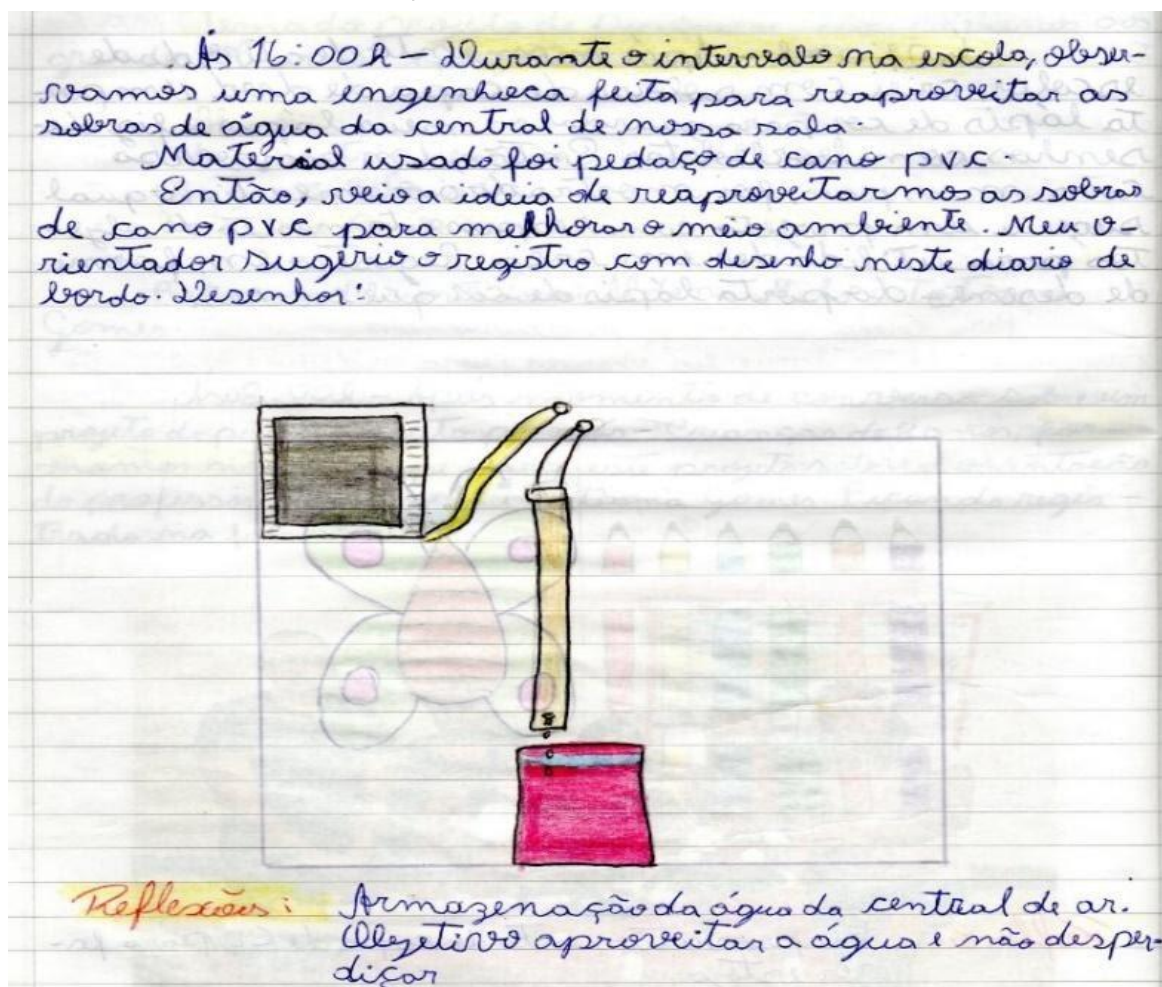 Ás 16:00h - Durante o intervalo na escola, obser-
vamos uma engenhoca feita para reaproveitar as
sobras de água da central de nossa sala.
Material usado foi pedaço de cano pvc.
Então, veio a ideia de reaproveitarmos as sobras
de cano pvc para melhorar o meio ambiente. Meu o-
rientador sugério o registro com desenho neste diario de
bordo. Desenhor:
Reflexões: Armazenação da água da central de ar.
Objetivo aproveitar a água e não desper-
diçar